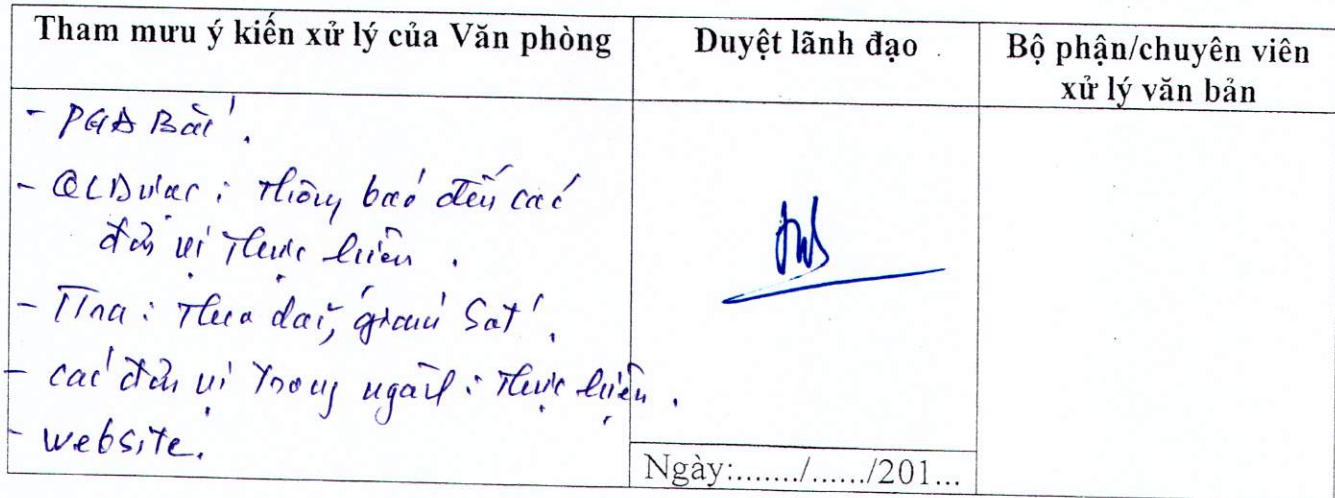 Tham mưu ý kiến xử lý của Văn phòng
Duyệt lãnh đạo
Bộ phận/chuyên viên
xử lý văn bản
- PGĐ Bài.
- QLDược: Thông báo đến các
đơn vị thực hiện.
- TTra: Theo dõi, giám sát.
- các đơn vị trong ngành: thực hiện.
- website.
Ngày:......./....../201...